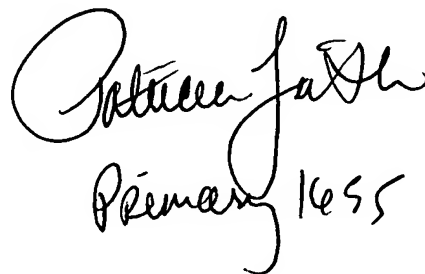 Patricia
Primary 1655